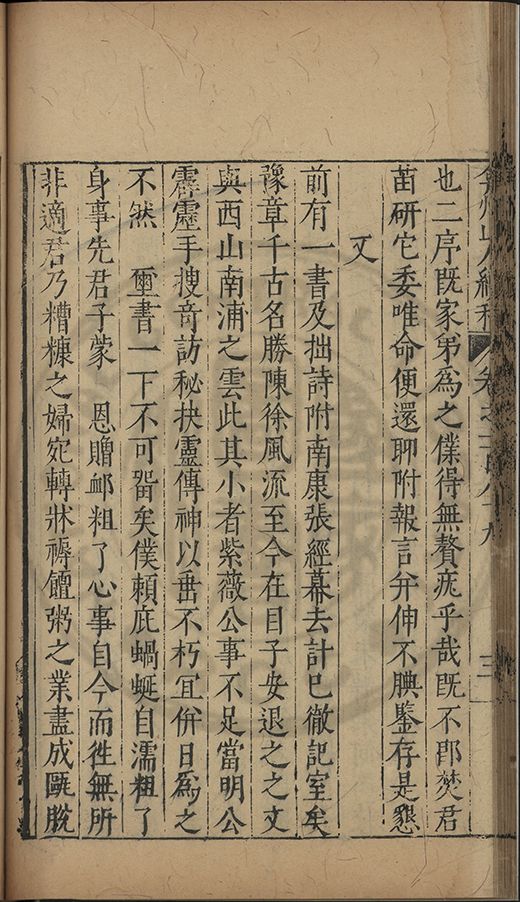 也二序旣家弟爲之僕得無贅疣乎哉旣不郎焚君
苗硏它委唯命便還聊附報言幷伸不腆鑒存是懇
又
前有一書及拙詩附南康張經幕去計已徹記室矣
豫章千古名勝陳徐風流至今在目子安退之之文
與西山南浦之雲此其小者紫薇公事不足當明公
霹靂手搜奇訪秘抉靈傳神以垂不朽宜倂日爲之
不然 璽書一下不可畱矣僕賴庇蝸蜒自濡粗了
身事先君子蒙 恩贈䘏粗了心事自今而徃無所
非適君乃糟糠之婦宛轉牀褥饘粥之業盡成甌脫